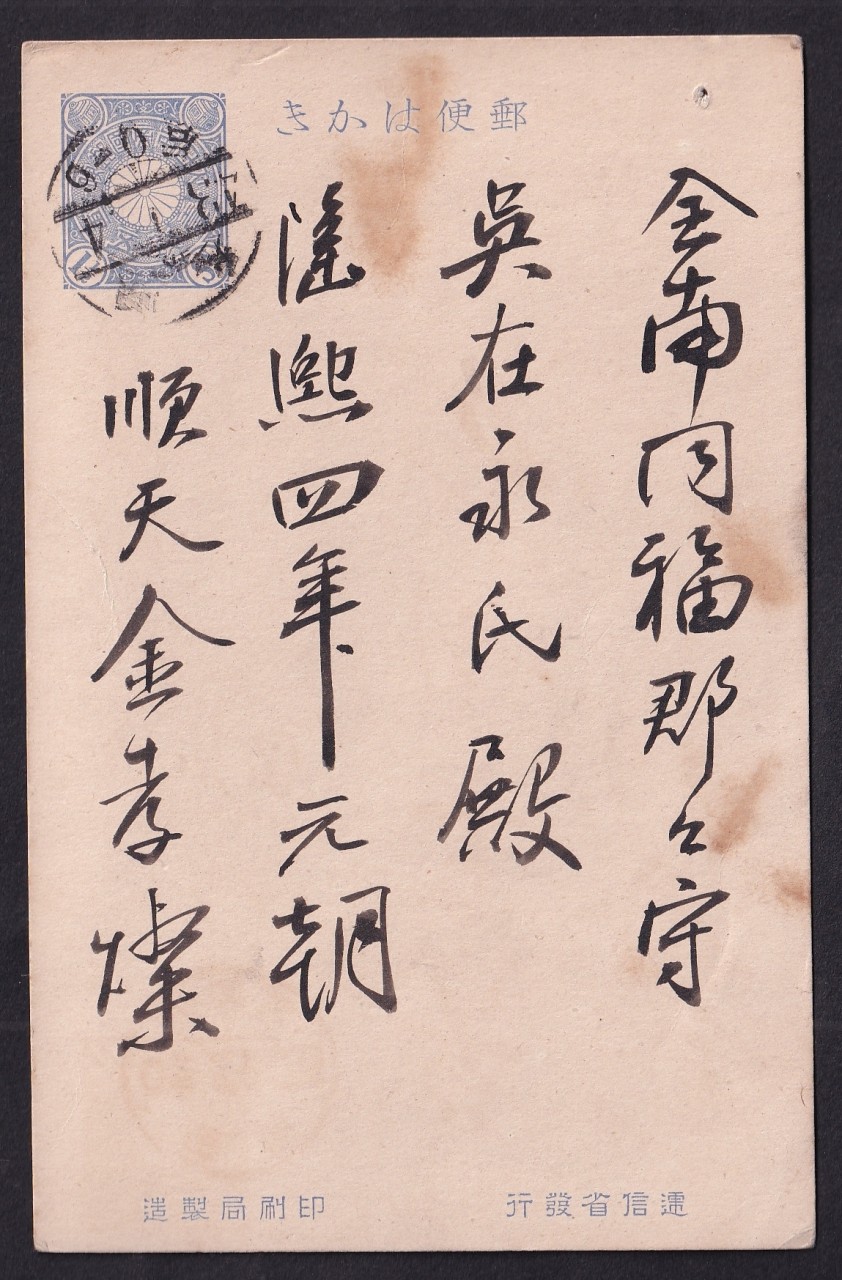 郵便はかき
全南同福郡々守
吳在永氏殿
隆熙四年元朝
順天金孝燦
遞信省發行
印刷局製造